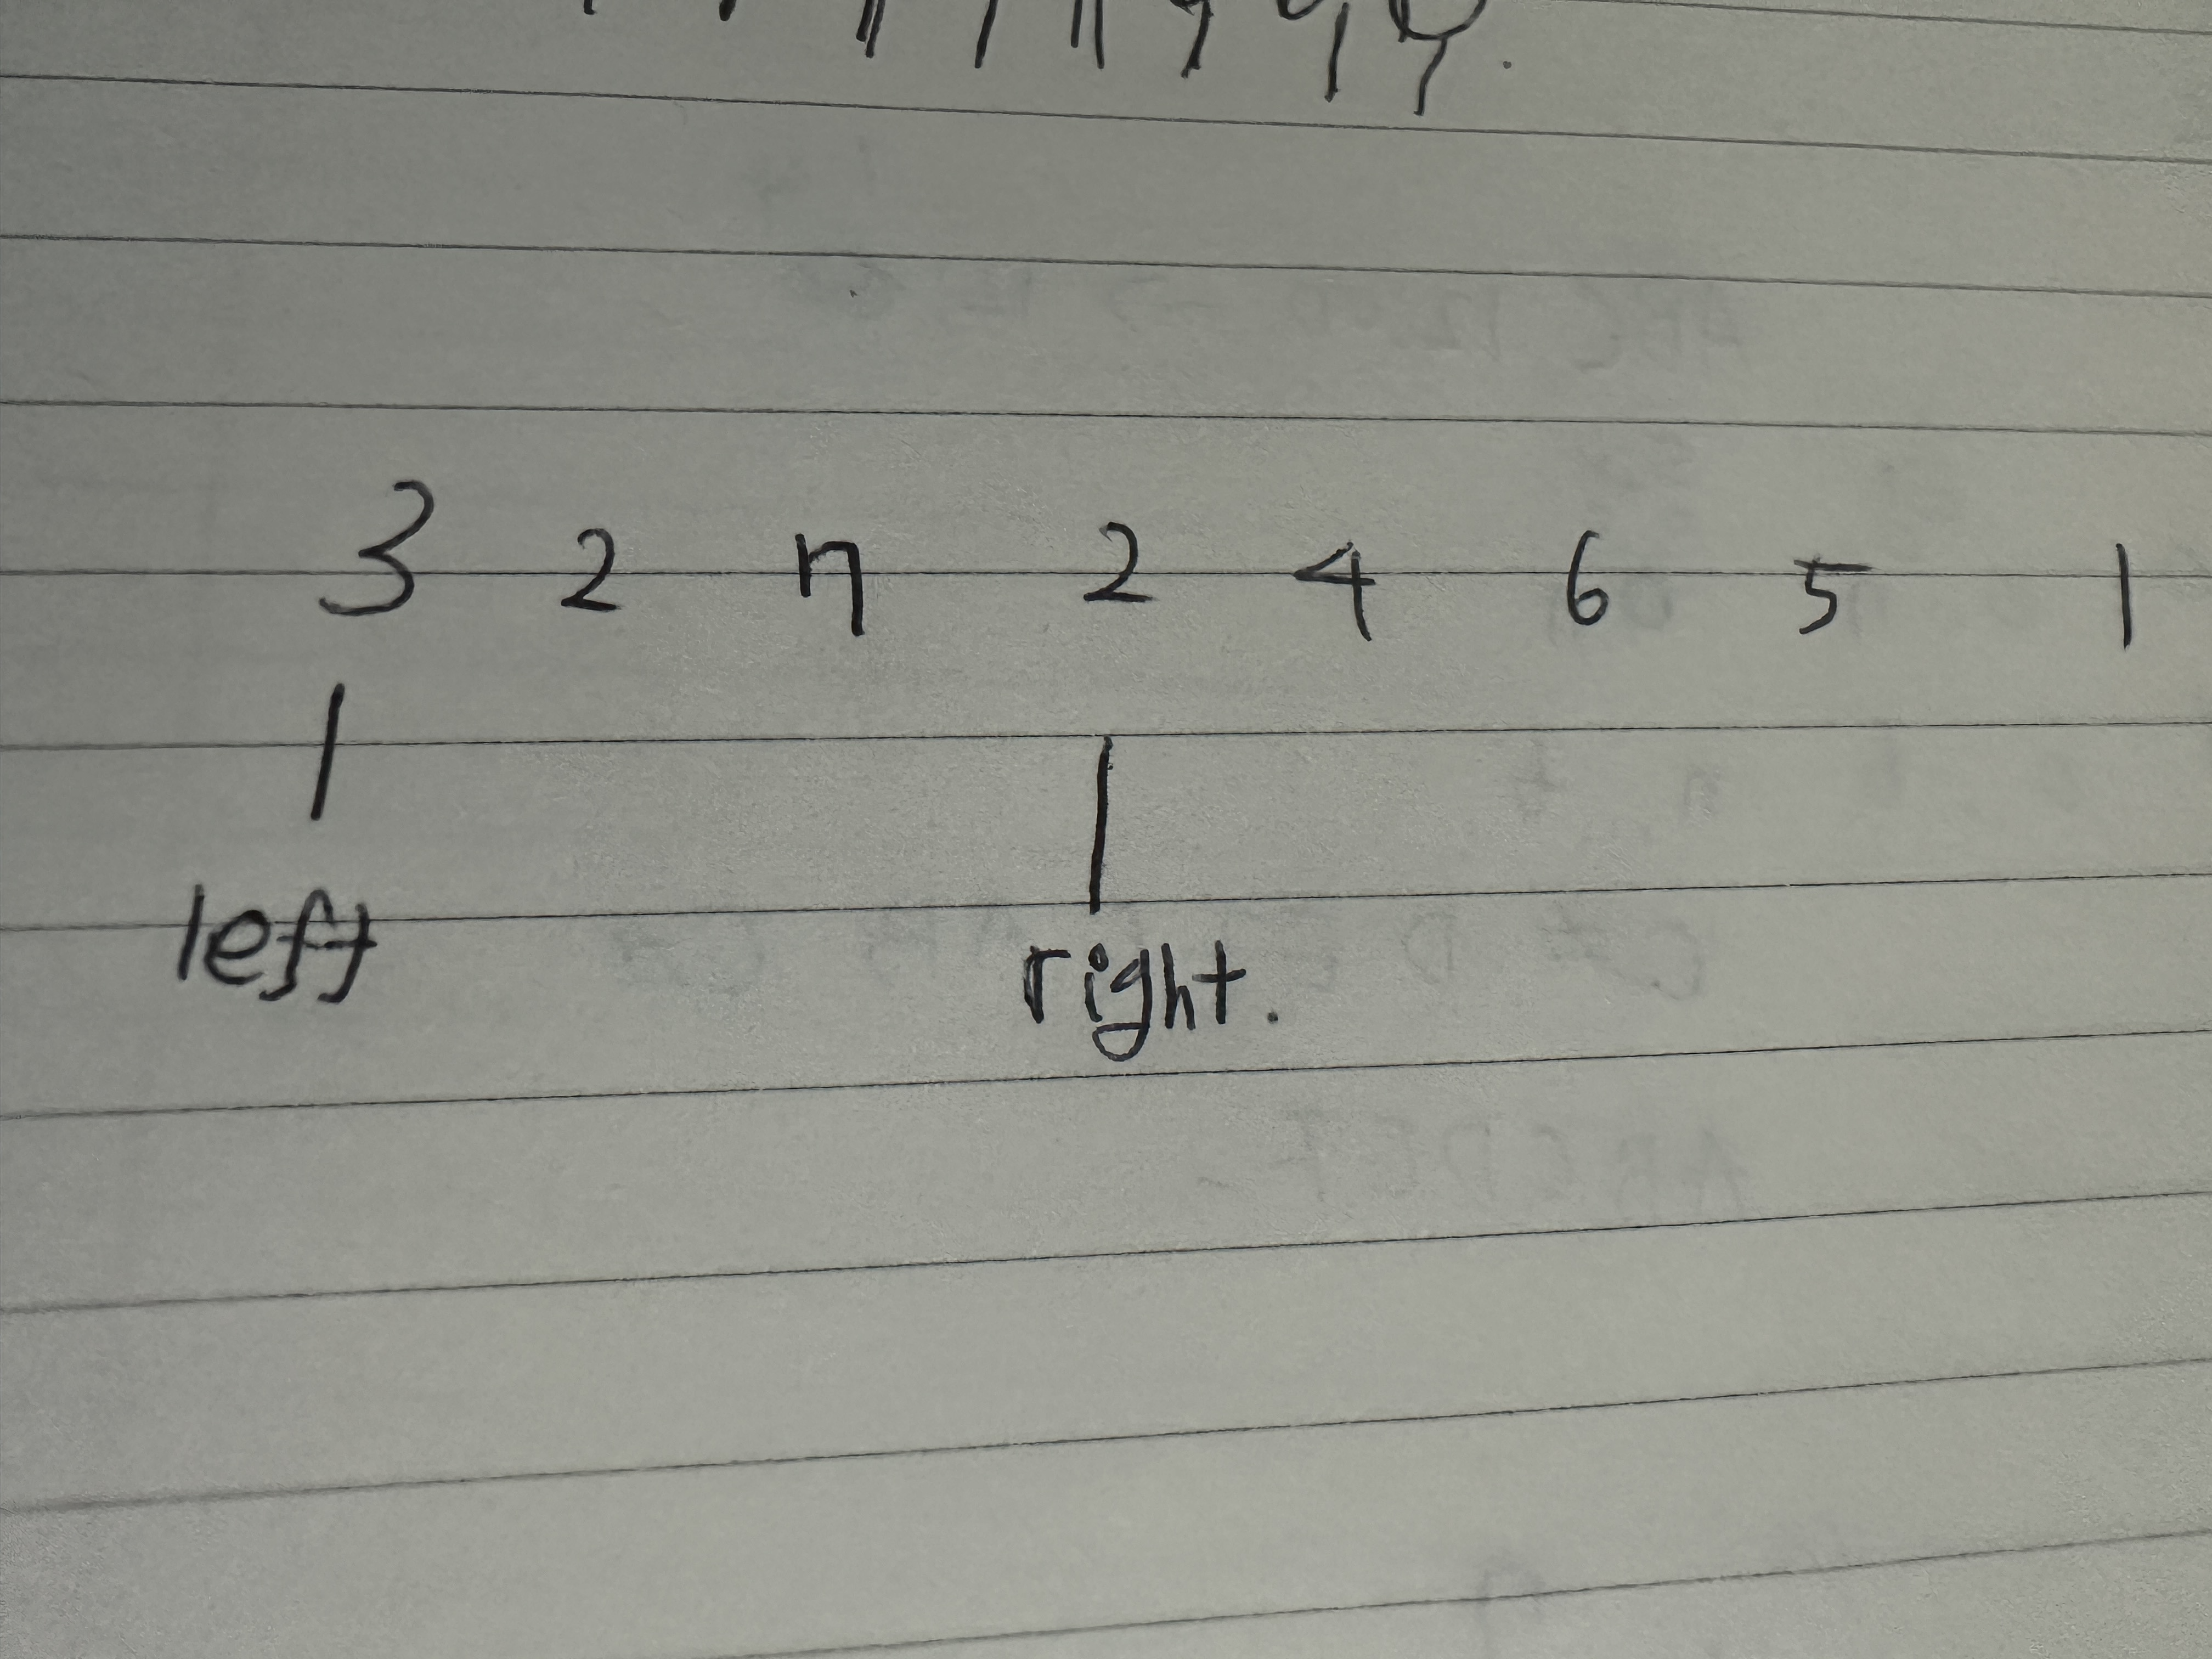 3 2 7 2 4 6 5 1
left right.